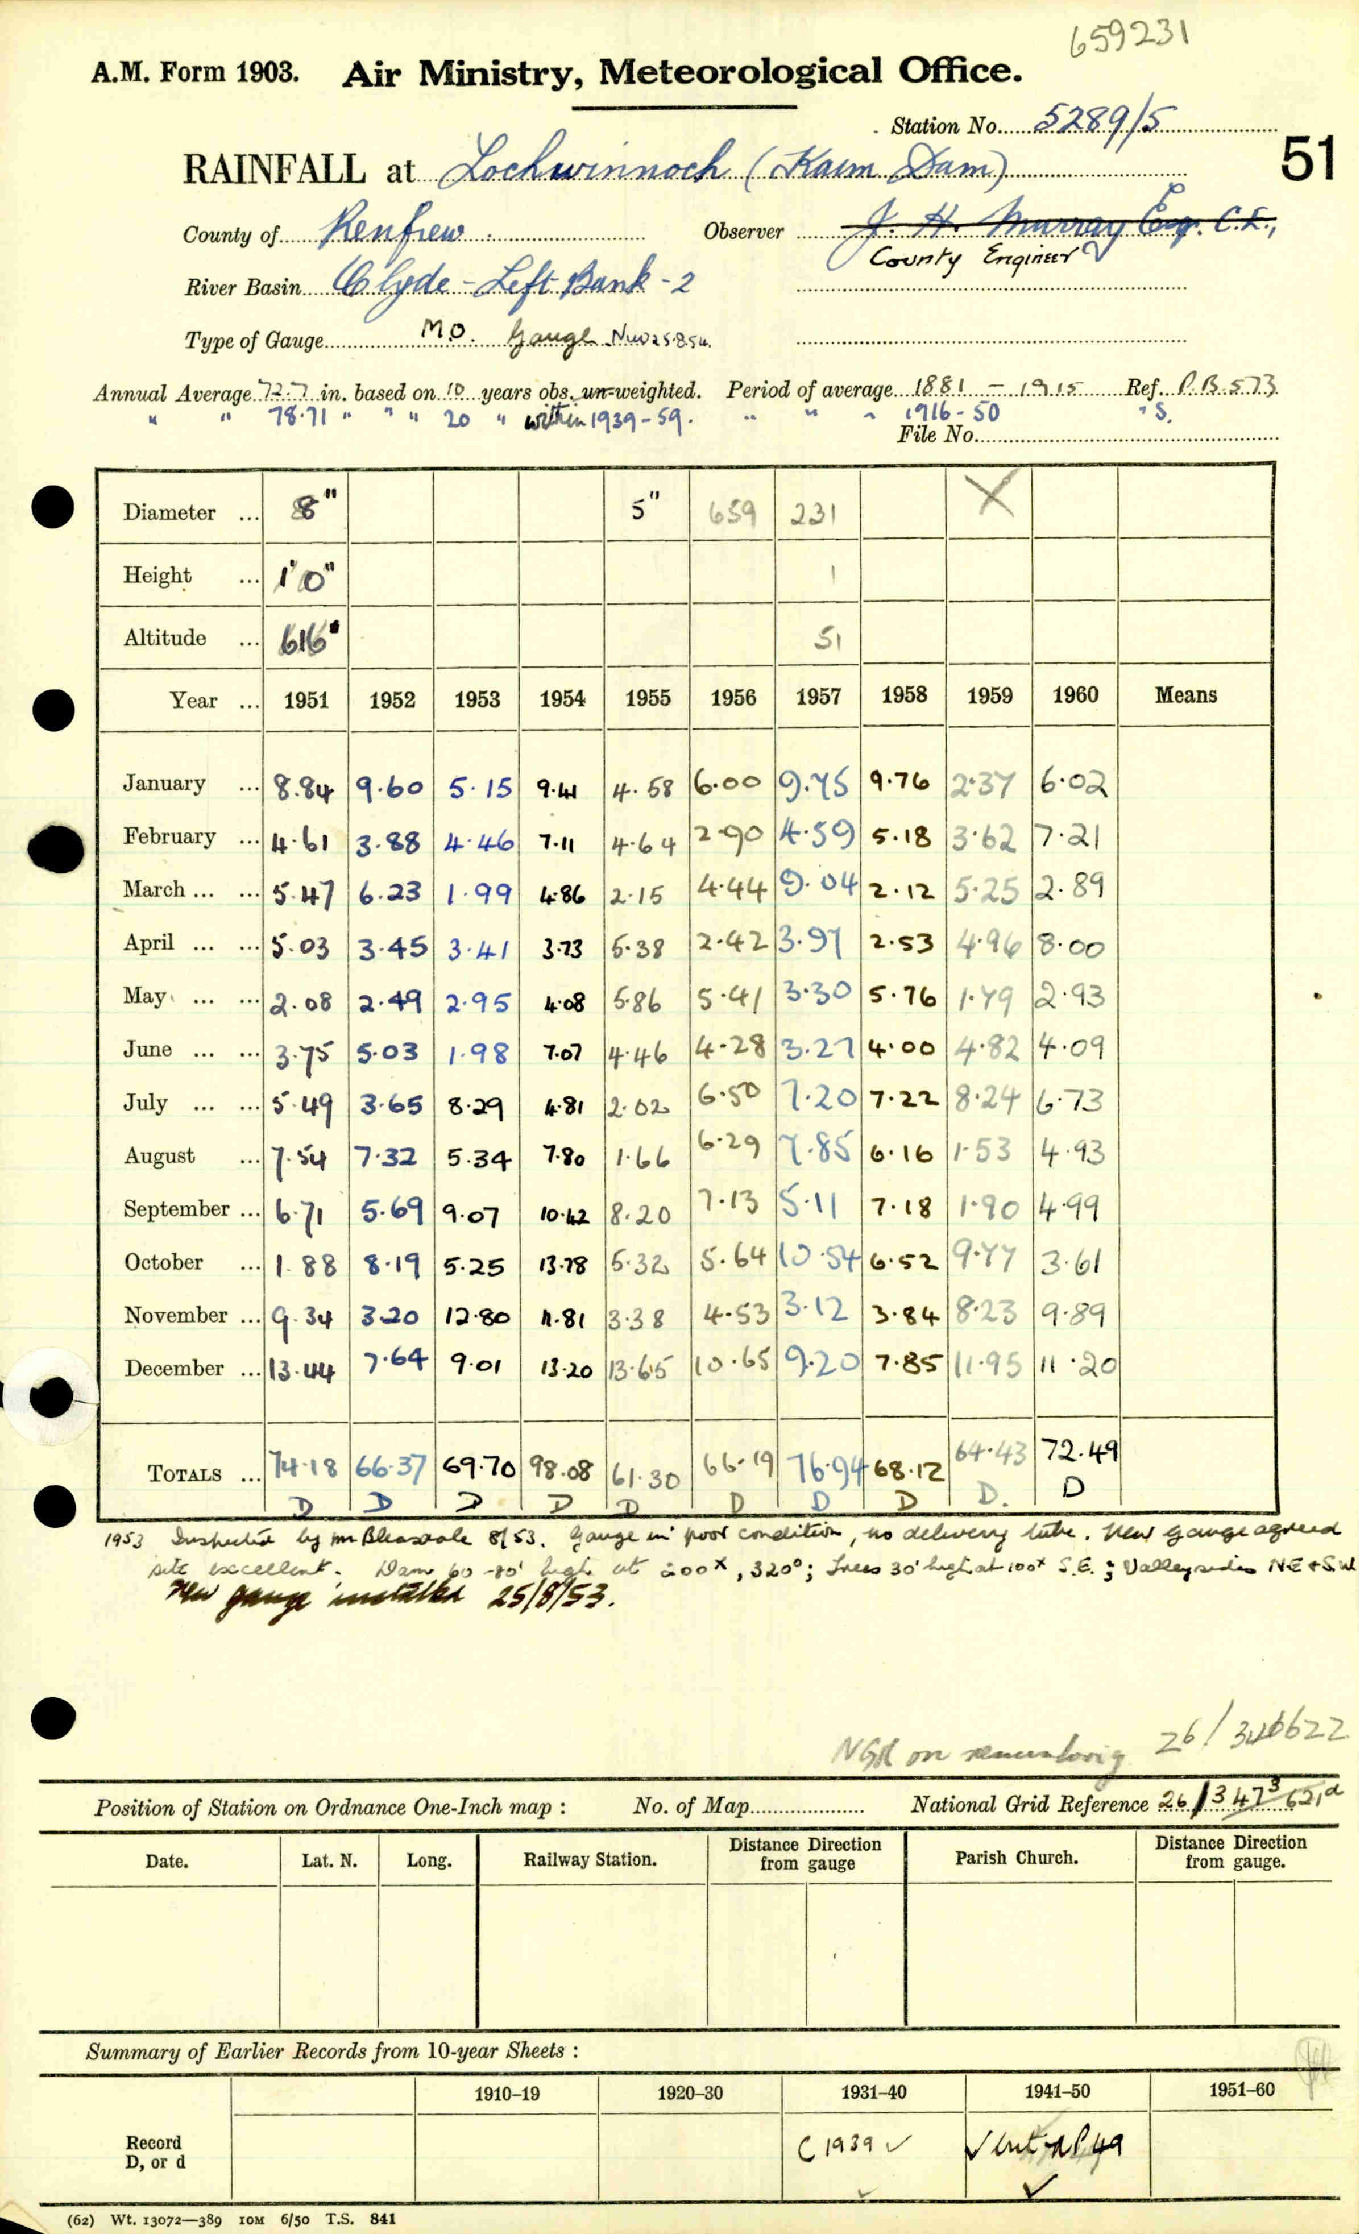 659231
A.M. Form 1903. Air Ministry, Meteorological Office.
Station No. 5289/5
51
RAINFALL at Lochwinnoch (Kaim Dam)
County of Renfrew Observer J. H. Murray Esq. C.E.,
County Engineer
River Basin Clyde - Left Bank - 2
Type of Gauge MO. Gauge
Annual Average 72.7 in. based on 10 years obs. un-weighted. Period of average 1881 - 1915 Ref. P.B. 573
" " 78.71 " " " 20 " within 1939-59. " " " 1916-50 " S.
File No.
Diameter ... 8" 5" 659 231 X
Height ... 1'0" 1
Altitude ... 616' 51
Year ... 1951 1952 1953 1954 1955 1956 1957 1958 1959 1960 Means
January ... 8.84 9.60 5.15 9.41 4.58 6.00 9.75 9.76 2.37 6.02
February ... 4.61 3.88 4.46 7.11 4.64 2.90 4.59 5.18 3.62 7.21
March ... ... 5.47 6.23 1.99 4.86 2.15 4.44 9.04 2.12 5.25 2.89
April ... ... 5.03 3.45 3.41 3.73 5.38 2.42 3.97 2.53 4.96 8.00
May ... ... 2.08 2.49 2.95 4.08 5.86 5.41 3.30 5.76 1.79 2.93
June ... ... 3.75 5.03 1.98 7.07 4.46 4.28 3.27 4.00 4.82 4.09
July ... ... 5.49 3.65 8.29 4.81 2.02 6.50 7.20 7.22 8.24 6.73
August ... 7.54 7.32 5.34 7.80 1.66 6.29 7.85 6.16 1.53 4.93
September ... 6.71 5.69 9.07 10.42 8.20 7.13 5.11 7.18 1.90 4.99
October ... 1.88 8.19 5.25 13.78 5.32 5.64 10.54 6.52 9.77 3.61
November ... 9.34 3.20 12.80 11.81 3.38 4.53 3.12 3.84 8.23 9.89
December ... 13.44 7.64 9.01 13.20 13.65 10.65 9.20 7.85 11.95 11.20
TOTALS ... 74.18 66.37 69.70 98.08 61.30 66.19 76.94 68.12 64.43 72.49
D D D D D D D D D. D
1953 Inspected by Mr Bleasdale 8/53. Gauge in poor condition, no delivery tube. New gauge agreed
site excellent. Dam 60-80' high at 200x, 320°; Trees 30' high at 100x S.E.; Valley sides NE & SW
New gauge installed 25/8/53.
NGR on 26/346622
Position of Station on Ordnance One-Inch map : No. of Map National Grid Reference 26/347³ 621a
Date. Lat. N. Long. Railway Station. Distance from gauge Direction Parish Church. Distance Direction from gauge.
Summary of Earlier Records from 10-year Sheets :
1910–19 1920–30 1931–40 1941–50 1951–60
Record
D, or d
C 1939 ✓ ✓
(62) Wt. 13072—389 10M 6/50 T.S. 841